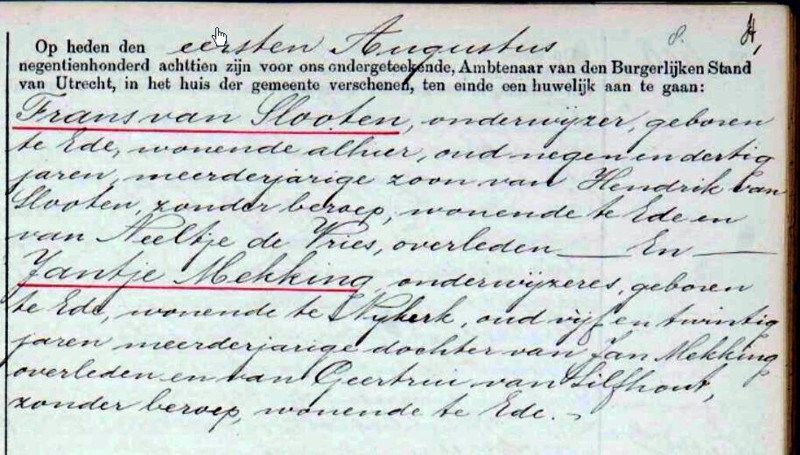 8. H,
Op heden den eersten Augustus
negentienhonderd achttien zijn voor ons ondergeteekende, Ambtenaar van den Burgerlijken Stand
van Utrecht, in het huis der gemeente verschenen, ten einde een huwelijk aan te gaan:
Frans van Slooten, onderwijzer, geboren
te Ede, wonende alhier, oud negen en dertig
jaren, meerderjarige zoon van Hendrik van
Slooten, zonder beroep, wonende te Ede en
van Neeltje de Vries, overleden — En —
Jantje Mekking, onderwijzeres, geboren
te Ede, wonende te Nijkerk, oud vijf en twintig
jaren meerderjarige dochter van Jan Mekking,
overleden en van Geertrui van Silfhout,
zonder beroep, wonende te Ede. -